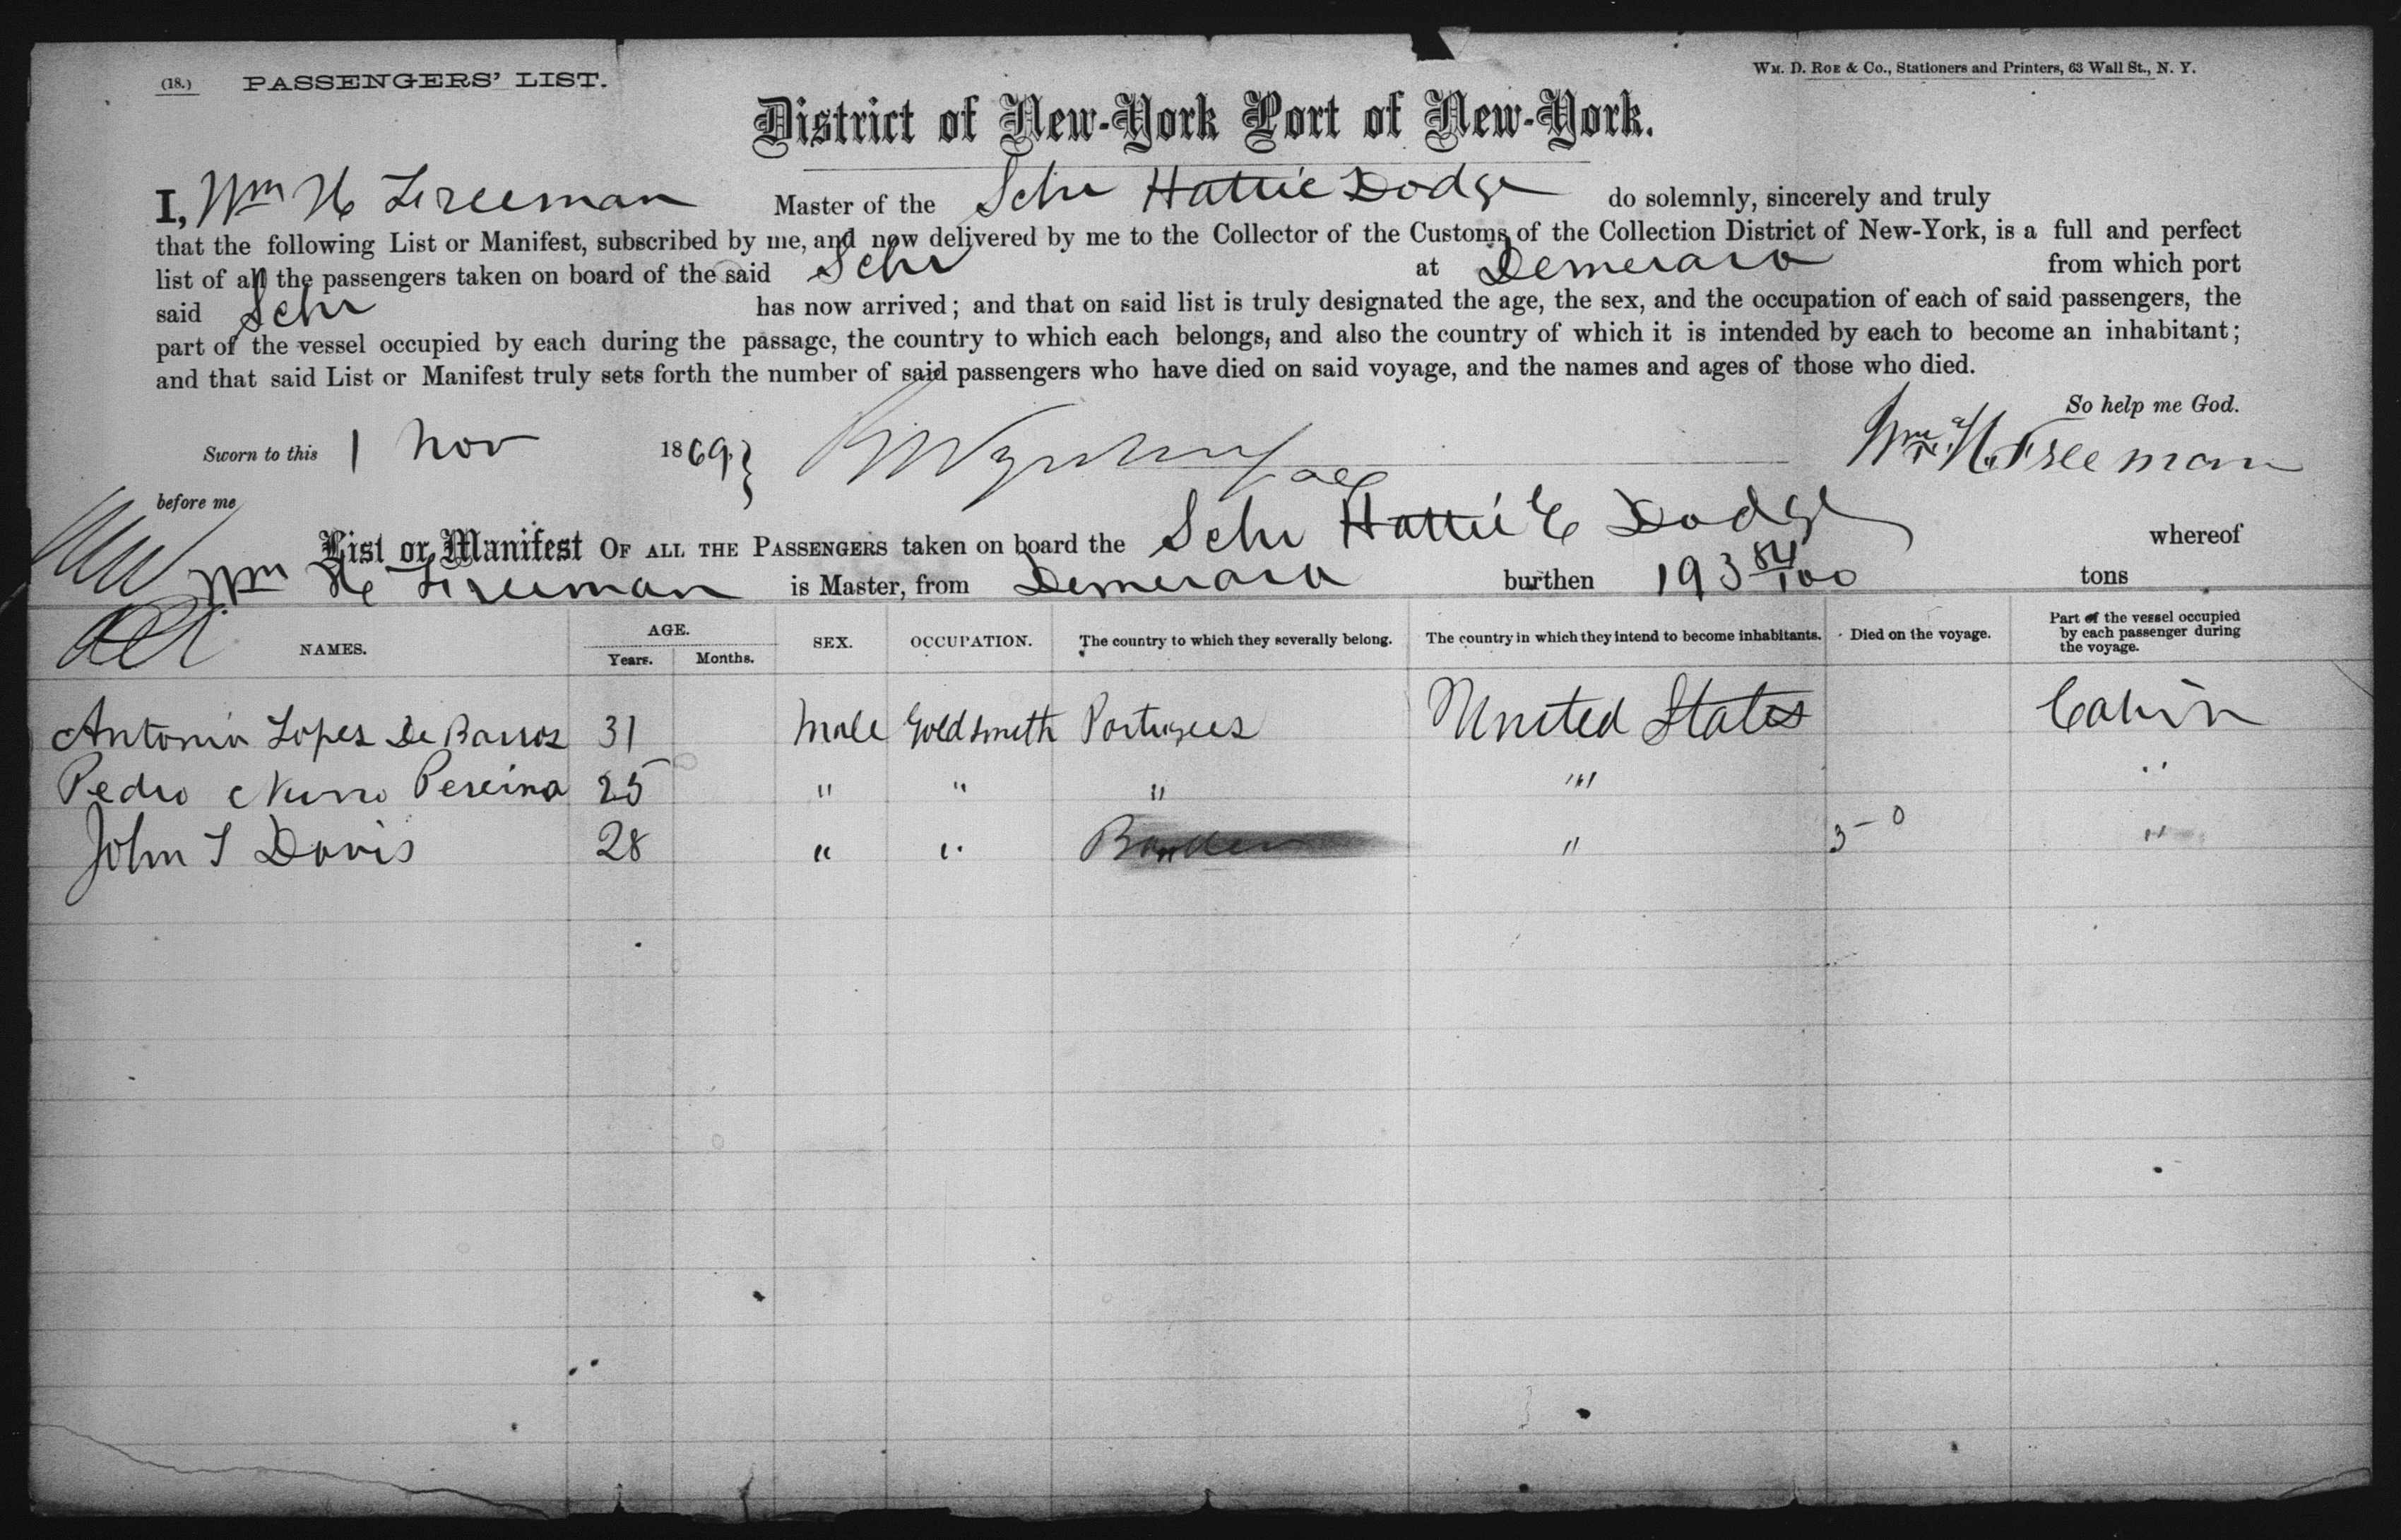 (18.) PASSENGERS' LIST.
Wm. D. Roe & Co., Stationers and Printers, 63 Wall St., N. Y.
District of New-York Port of New-York.
I, Wm H Freeman Master of the Schr Hattie Dodge do solemnly, sincerely and truly
that the following List or Manifest, subscribed by me, and now delivered by me to the Collector of the Customs of the Collection District of New-York, is a full and perfect
list of all the passengers taken on board of the said Schr at Demerara from which port
said Schr has now arrived; and that on said list is truly designated the age, the sex, and the occupation of each of said passengers, the
part of the vessel occupied by each during the passage, the country to which each belongs, and also the country of which it is intended by each to become an inhabitant;
and that said List or Manifest truly sets forth the number of said passengers who have died on said voyage, and the names and ages of those who died.
So help me God.
Sworn to this 1 Nov 1869 } Wm H. Freeman
before me
List or Manifest Of all the Passengers taken on board the Schr Hattie E Dodge whereof
Wm H Freeman is Master, from Demerara burthen 193 84/100 tons
NAMES. AGE. Years. Months. SEX. OCCUPATION. The country to which they severally belong. The country in which they intend to become inhabitants. Died on the voyage. Part of the vessel occupied by each passenger during the voyage.
Antonio Lopes De Barros 31 Male Goldsmith Portugees United States Cabin
Pedro Nunno Pereira 25 " " " " "
John S Davis 28 " " " "